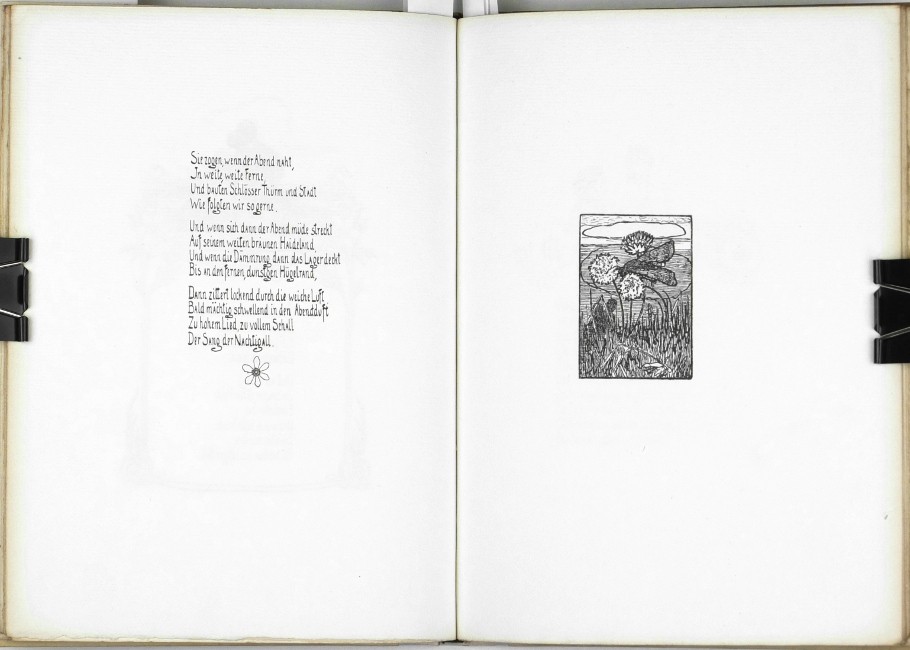 Sie zogen, wenn der Abend naht,
In weite, weite Ferne,
Und bauten Schlösser Thürm und Stadt
Wie folgten wir so gerne.
Und wenn sich dann der Abend müde streckt
Auf seinem weiten braunen Haideland,
Und wenn die Dämmrung dann das Lager deckt
Bis an den fernen, dunstigen Hügelrand,
Dann zittert lockend durch die weiche Luft
Bald mächtig schwellend in den Abendduft
Zu hohem Lied, zu vollem Schall
Der Sang der Nachtigall.